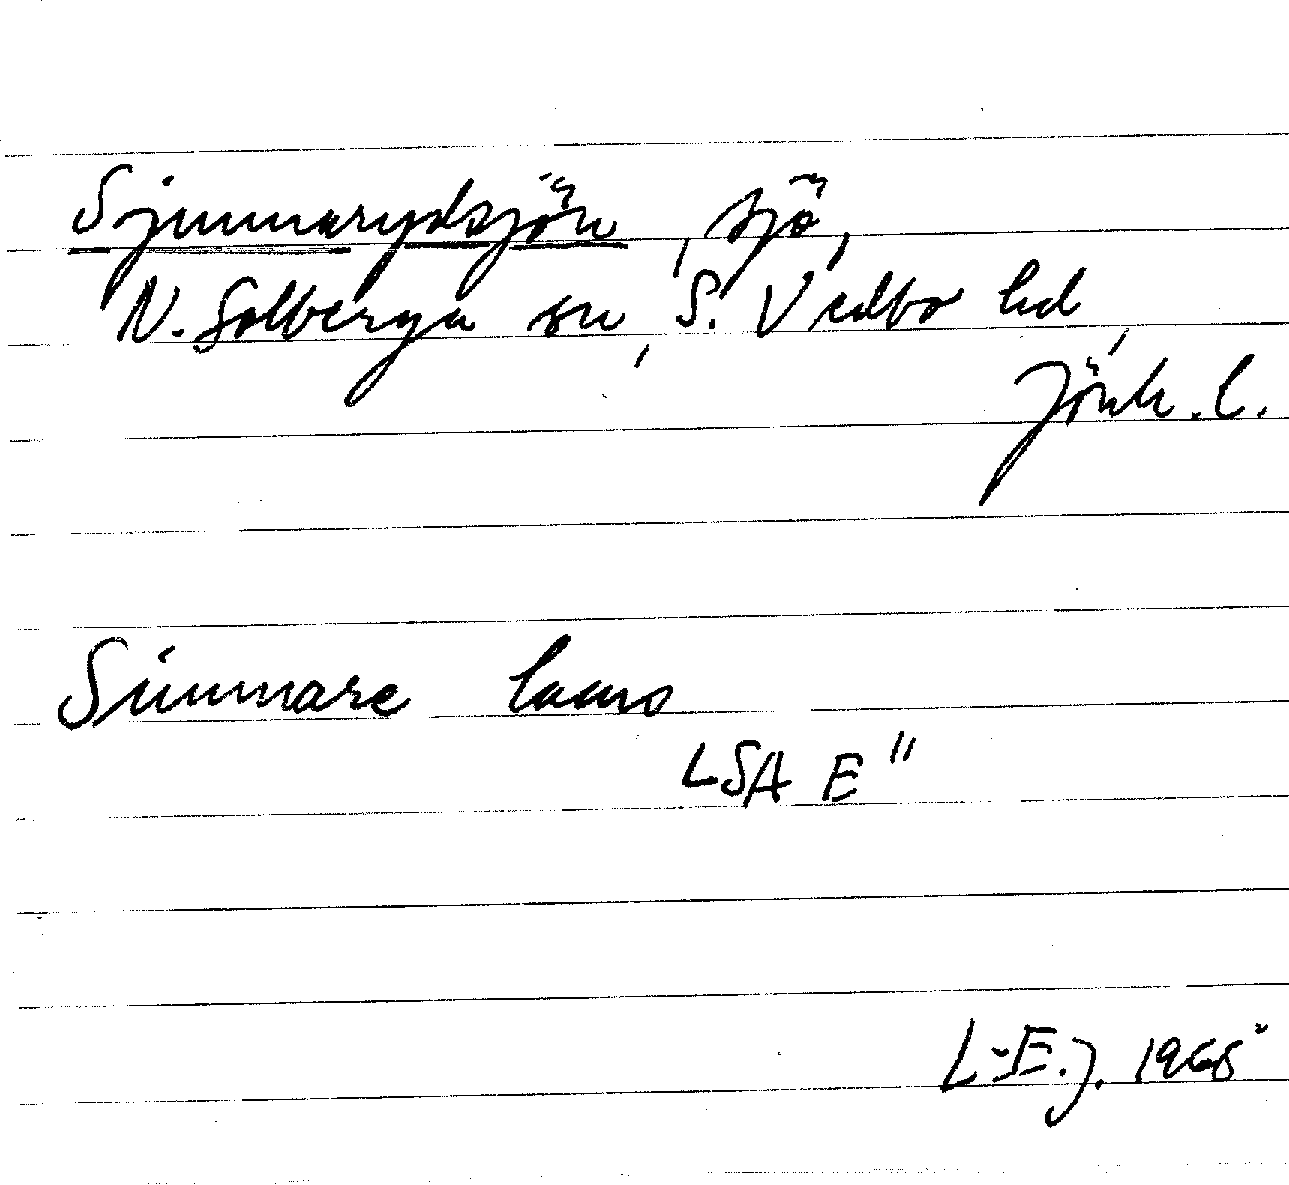 Sjunnarydsjön, sjö,
N. Solberga sn, S. Vedbo hd,
Jönk. l.
Sunnare
LSA E"
L-E.J. 1968